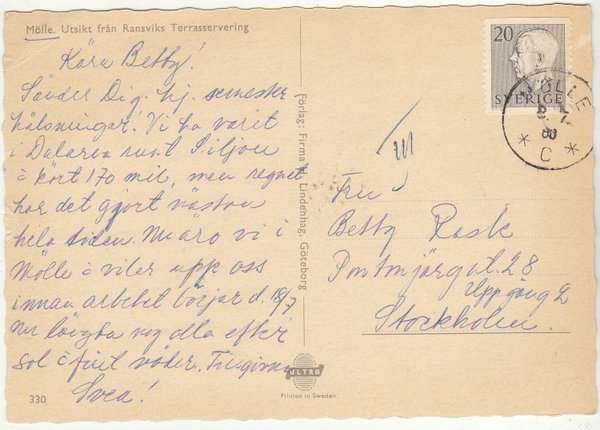 Mölle. Utsikt från Ransviks Terrasservering
Kära Betty!
Sänder Dig hj. semester
hälsningar. Vi ha varit
i Dalarna runt Siljan
o kört 170 mil, men regnet
har det gjort nästan
hela tiden. Nu äro vi i
Mölle o viler upp oss
innan arbetet börjar d. 18/7
Nu längta nog alla efter
sol o fint väder.
Svea!
330
Förlag: Firma H. Lindenhag, Göteborg
ULTRA
Printed in Sweden
20
SVERIGE
MÖLLE
C
Fru
Betty Rask
28
Uppgång 2
Stockholm.